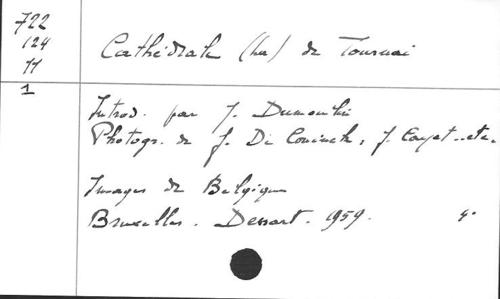 722
124
11
1
Cathédrale (La) de Tournai
Introd. par J. Dumoulin
Photogr. de J. De Coninck, J. Cayet.. etc.
Images de Belgique
Bruxelles. Dessart. 1959.